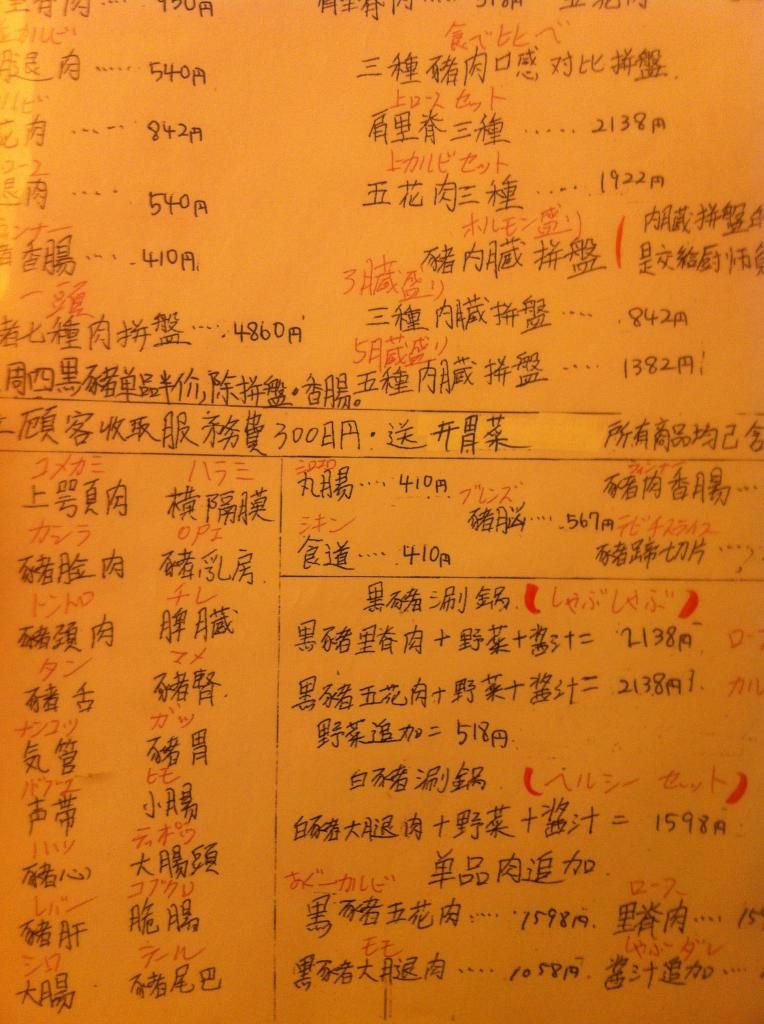 里脊肉 ····· 950円
肩里脊肉 ····· 518円 五花肉
カルビ
腿肉 ····· 540円
食べ比べ
三種豬肉口感对比拼盤
花肉 ····· 842円
上ロースセット
肩里脊三種 ····· 2138円
腿肉 ····· 540円
上カルビセット
五花肉三種 ····· 1922円
香腸 ····· 410円
ホルモン盛り
豬内臓拼盤
内臓拼盤
是交給厨师
一頭
七種肉拼盤 ···· 4860円
3臓盛り
三種内臓拼盤 ····· 842円
周四黒豬单品半价,除拼盤·香腸。
5臓盛り
五種内臓拼盤 ····· 1382円
顧客收取服務費300日円·送开胃菜
所有商品均已含
コメカミ ハラミ
上咢頁肉 横隔膜
カシラ OPI
豬脸肉 豬乳房
トントロ チレ
豬頸肉 脾臓
タン マメ
豬舌 豬腎
ナンコツ ガッ
気管 豬胃
ヒモ
声帯 小腸
ハツ テッポウ
豬心 大腸頭
レバー コブクロ
豬肝 脆腸
シロ テール
大腸 豬尾巴
丸腸 ···· 410円
ブレンズ
豬脳 ···· 567円
シキン
食道 ···· 410円
ウィンナー
豬肉香腸 ···
テビチスライス
豬蹄切片 ····
黒豬涮鍋 (しゃぶしゃぶ)
黒豬里脊肉+野菜+醤汁= 2138円
黒豬五花肉+野菜+醤汁= 2138円
野菜追加= 518円
白豬涮鍋 (ヘルシーセット)
白豬大腿肉+野菜+醤汁= 1598円
单品肉追加
あぐーカルビ ロース
黒豬五花肉 ···· 1598円 里脊肉 ····
モモ しゃぶダレ
黒豬大腿肉 ····· 1058円 醤汁追加 ····